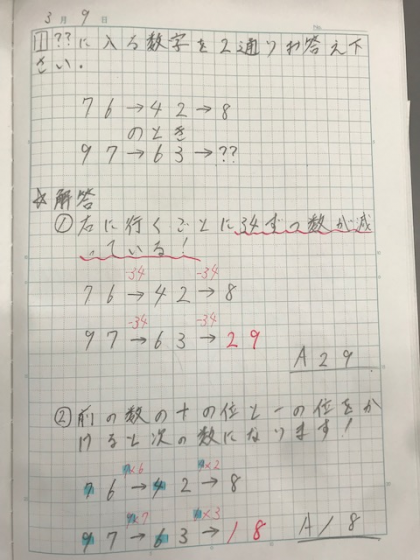 3月 9日
1 ??に入る数字を2通りお答え下
さい.
76→42→8
のとき
97→63→??
☆解答
①右に行くごとに34ずつ数が減
っている!
-34 -34
76→42→8
-34 -34
97→63→29
A 29
②前の数の十の位と一の位をか
けると次の数になります!
7×6 4×2
76→42→8
9×7 6×3
97→63→18
A 18